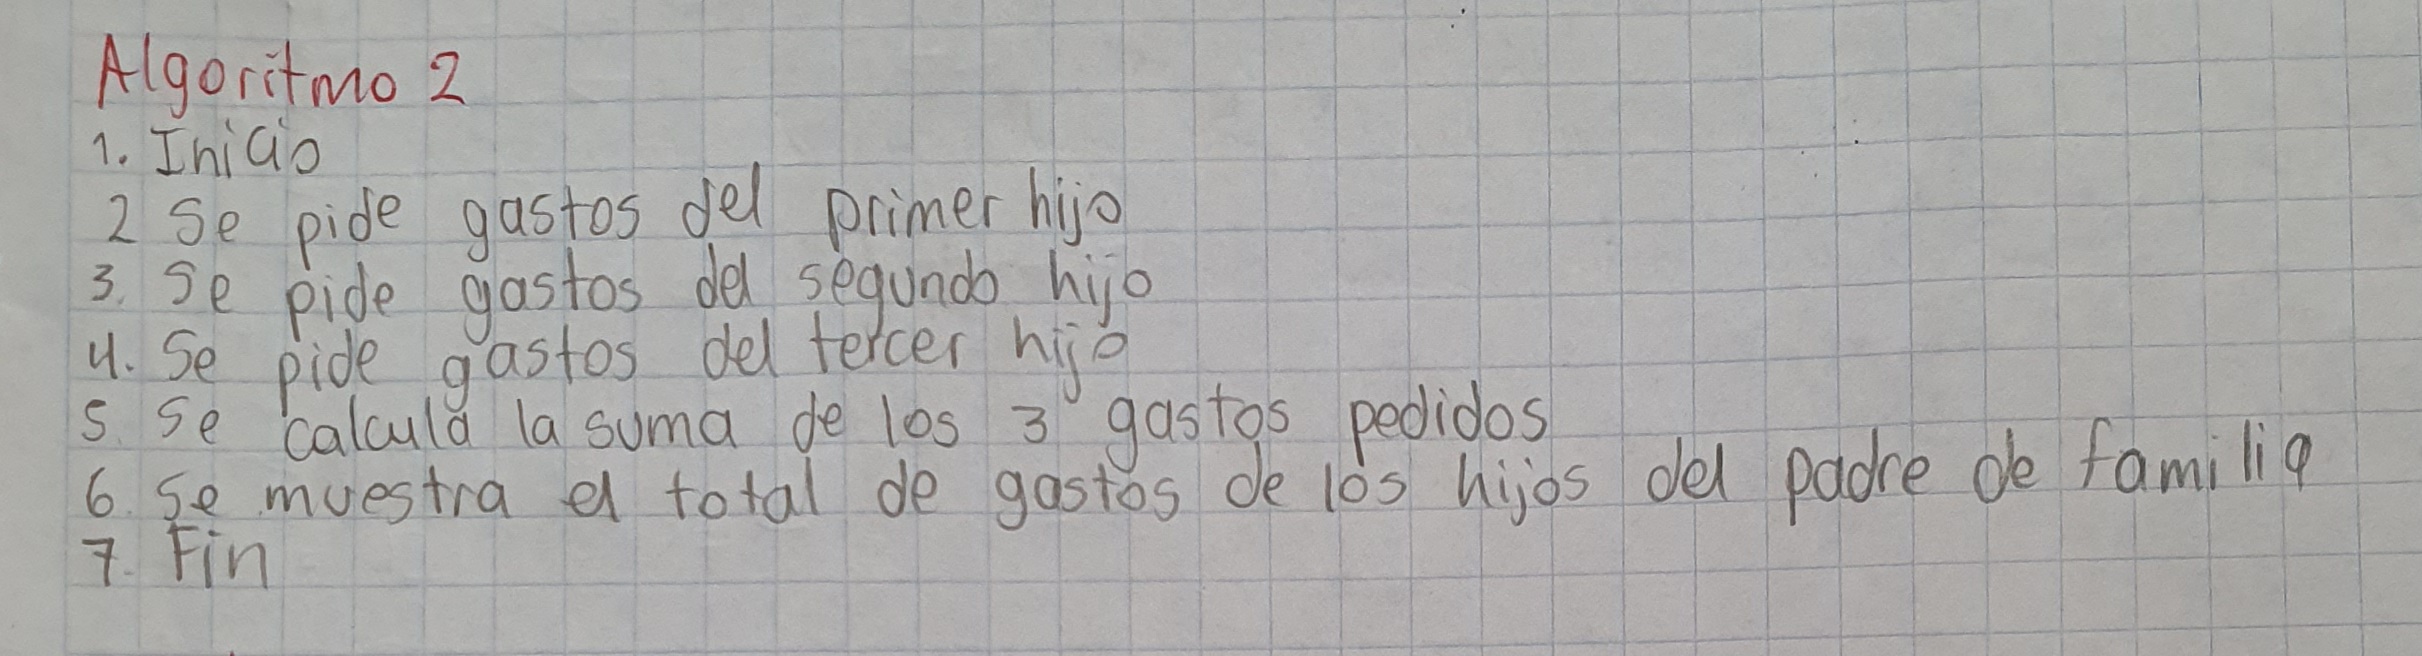 Algoritmo 2
1. Inicio
2 Se pide gastos del primer hijo
3. Se pide gastos del segundo hijo
4. Se pide gastos del tercer hijo
5. Se calcula la suma de los 3 gastos pedidos
6. Se muestra el total de gastos de los hijos del padre de familia
7. Fin